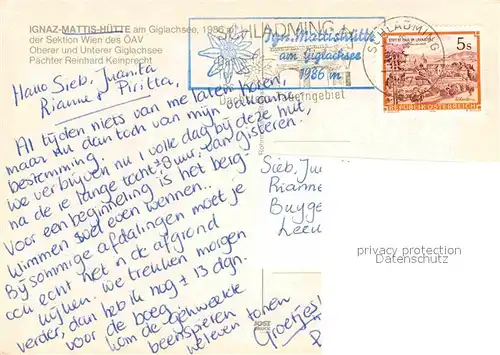 IGNAZ-MATTIS-HÜTTE am Giglachsee, 1986 m
der Sektion Wien des ÖAV
Oberer und Unterer Giglachsee
Pächter Reinhard Keinprecht
SCHLADMING
Ign. Mattishütte
am Giglachsee
1986 m
SCHLADMING
5s
REPUBLIK ÖSTERREICH
Hallo Sieb, Juanita
Rianne & Piritta,
Al tijden niets van me laten horen,
maar nu dan toch van mijn
bestemming.
We verblijven nu 1 volle dag bij deze hut,
na de 1e lange tocht gisteren!
Voor een beginneling is het berg-
klimmen wel even wennen..
Bij sommige afdalingen moet je
ook echt het in de afgrond
kijken. We trekken morgen
verder, dan heb ik nog ± 13 dgn.
voor de boeg
om de
beenspieren tonen
Groetjes!
Sieb, Ju
Rianne
Bugge
Leeu
privacy protection
privacy protection